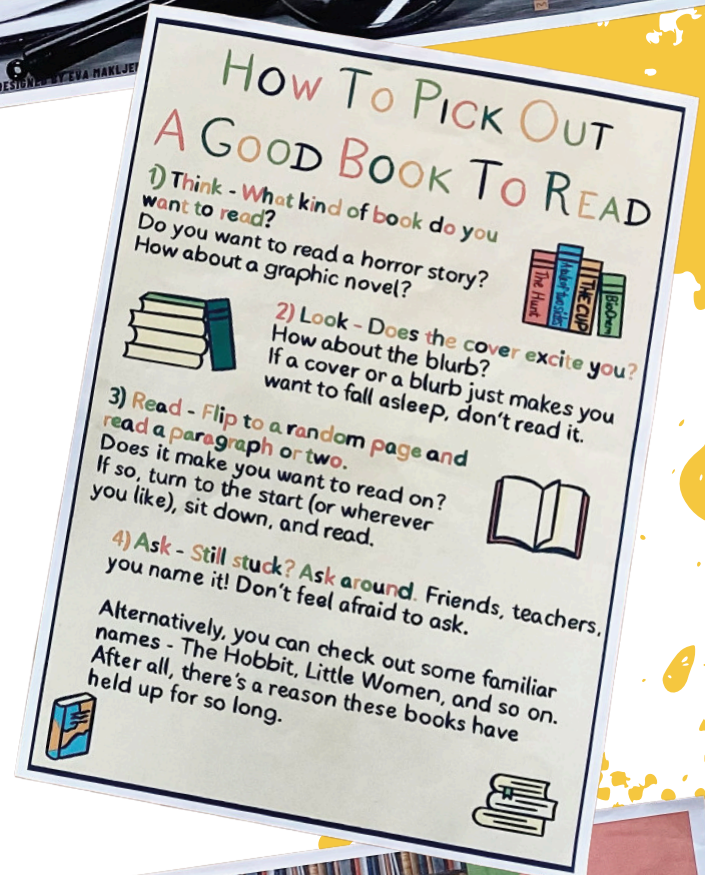 DESIGNED BY EVA
How To Pick Out
A Good Book To Read
1) Think - What kind of book do you
want to read?
Do you want to read a horror story?
How about a graphic novel?
The Hunt
THE CUP
BioChem
2) Look - Does the cover excite you?
How about the blurb?
If a cover or a blurb just makes you
want to fall asleep, don't read it.
3) Read - Flip to a random page and
read a paragraph or two.
Does it make you want to read on?
If so, turn to the start (or wherever
you like), sit down, and read.
4) Ask - Still stuck? Ask around. Friends, teachers,
you name it! Don't feel afraid to ask.
Alternatively, you can check out some familiar
names - The Hobbit, Little Women, and so on.
After all, there's a reason these books have
held up for so long.